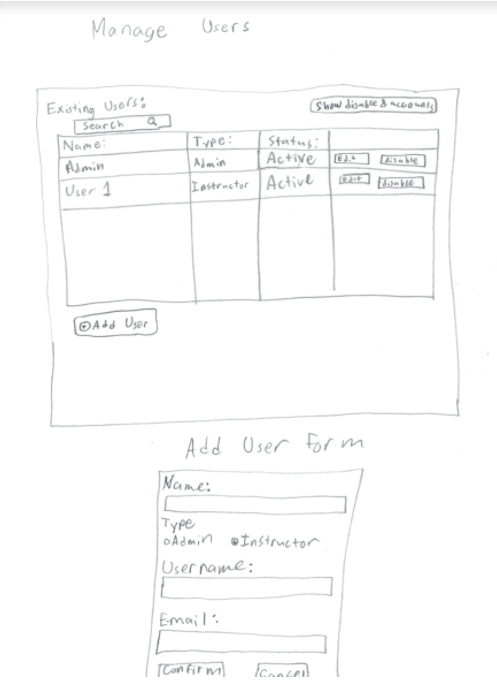 Manage Users
Existing Users:
Show disabled accounts
Search
Name: Type: Status:
Admin Admin Active Edit disable
User 1 Instructor Active Edit disable
Add User
Add User Form
Name:
Type
Admin Instructor
Username:
Email:
Confirm Cancel